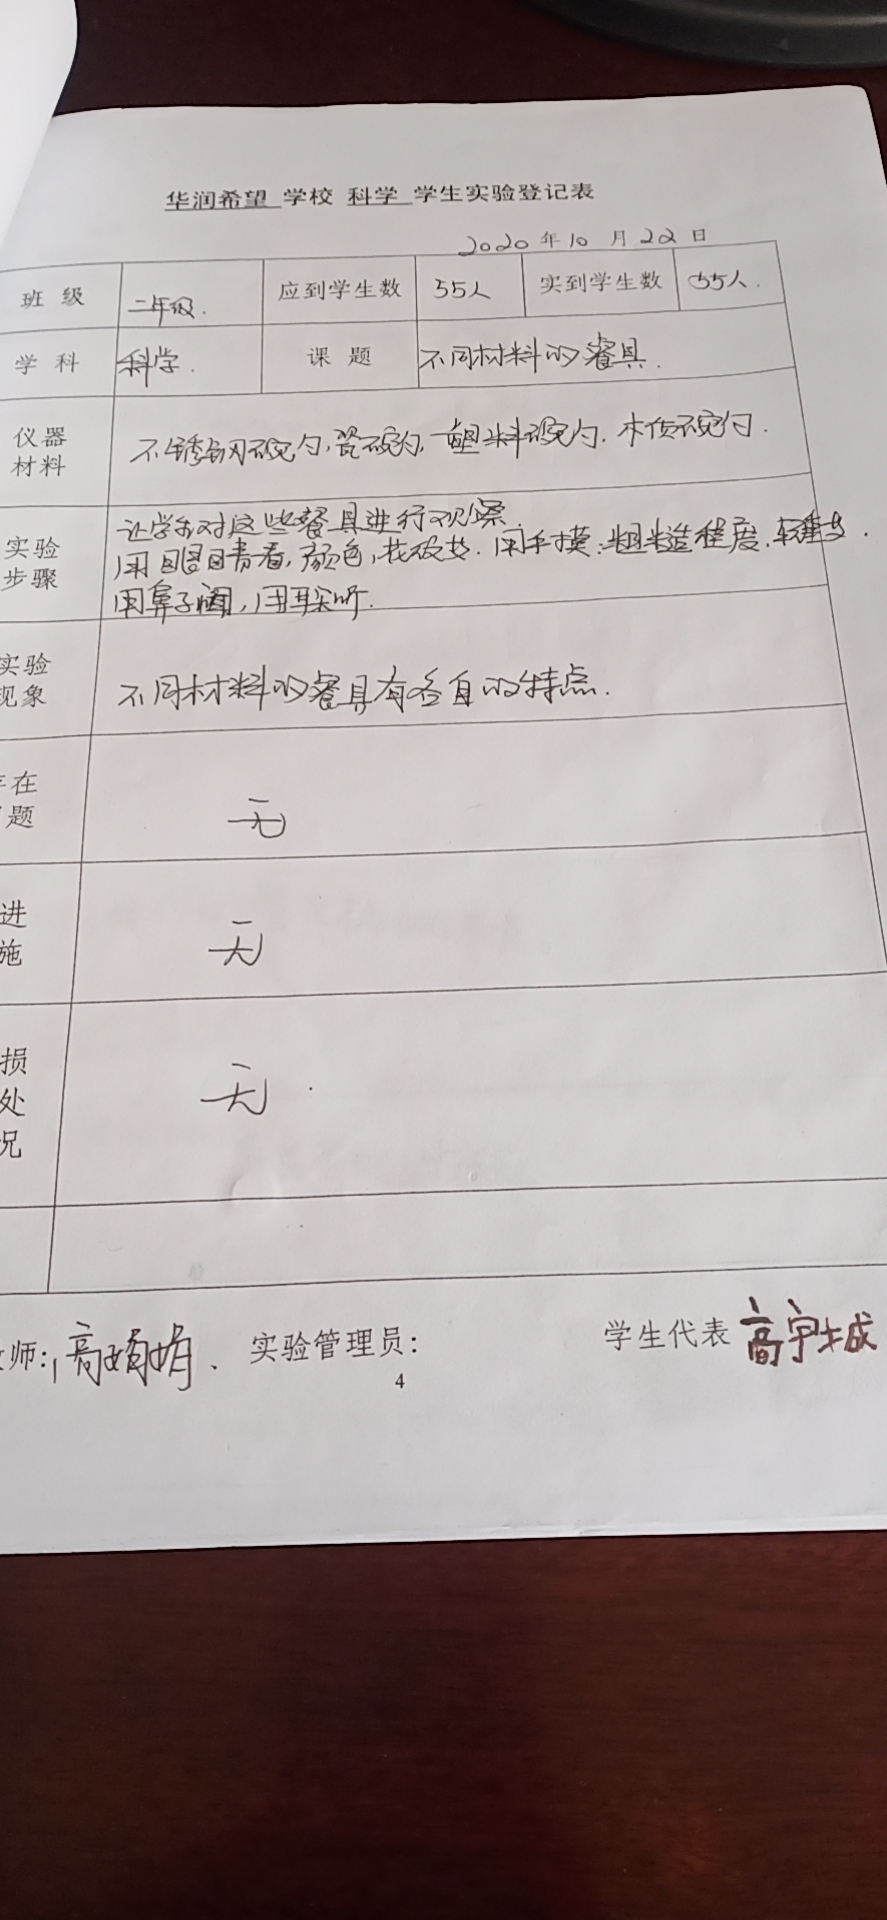 华润希望 学校 科学 学生实验登记表
2020 年 10 月 22 日
班级 二年级. 应到学生数 55人 实到学生数 55人.
学科 科学. 课题 不同材料的餐具.
仪器
材料
不锈钢碗勺,瓷碗勺,塑料碗勺.木质碗勺.
实验
步骤
让学生对这些餐具进行观察.
用眼睛看,颜色, 用手摸:粗糙程度.轻重
用鼻子闻,用耳朵听.
实验
现象
不同材料的餐具有各自的特点.
存在
题
无
进
施
无
损
处
况
无.
师: 高娟娟. 实验管理员: 学生代表 高宇城
4